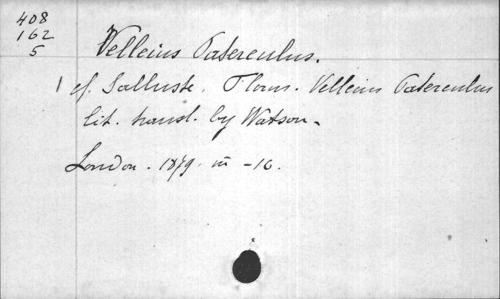 408
162
5
Velleius Paterculus.
1 cf. Salluste. Florus. Velleius Paterculus
lit. transl. by Watson.
London. 1879. in -16.